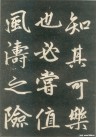 知其可樂
也必當值
風濤之險